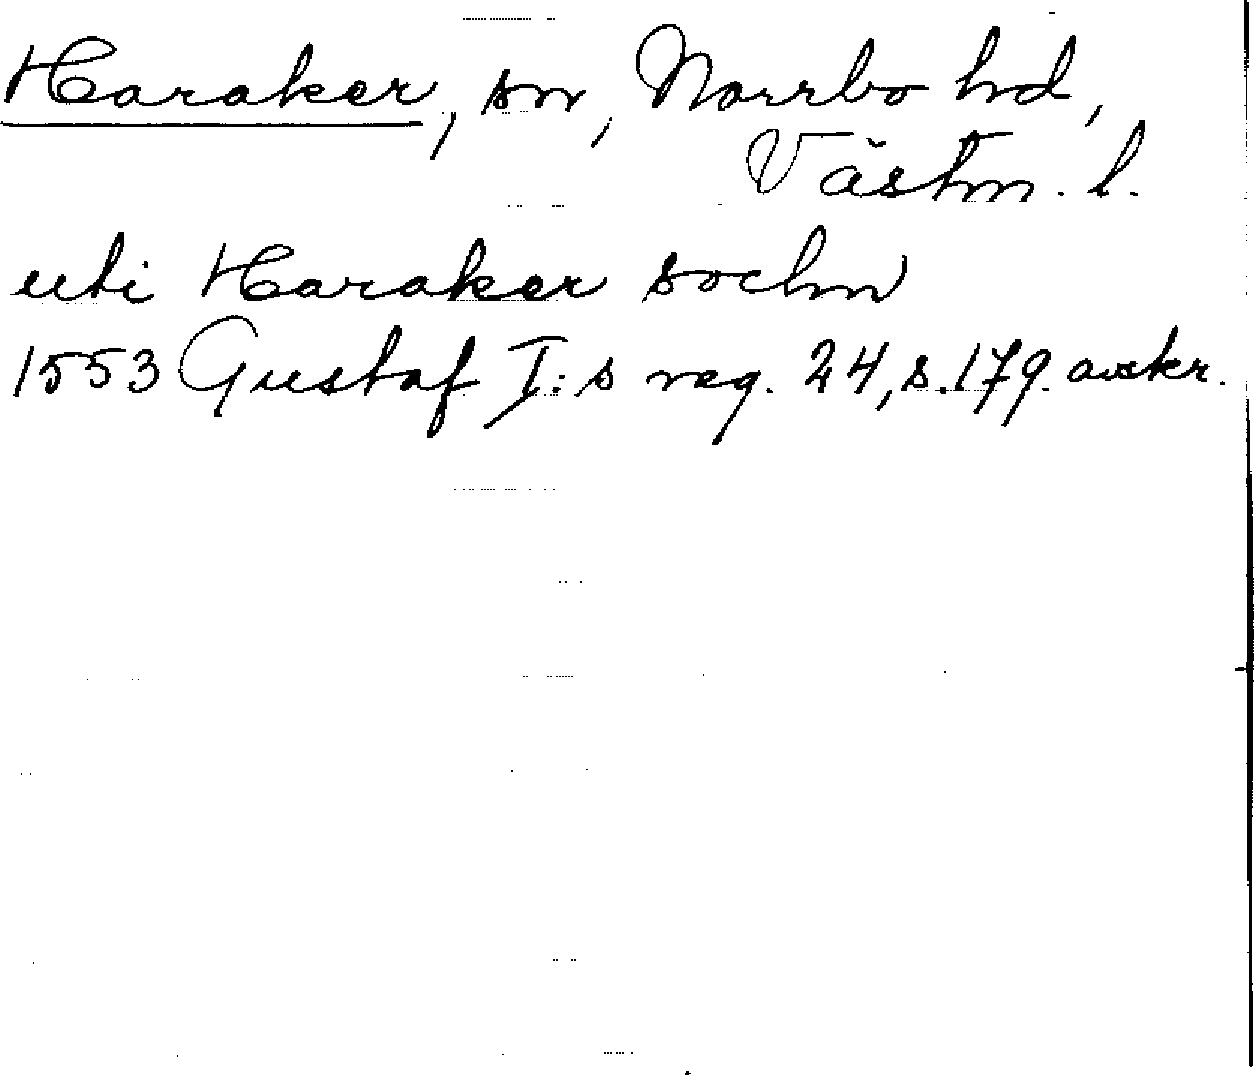 Haraker, sn, Norrbo hd,
Västm. l.
uti Haraker sochn
1553 Gustaf I:s reg. 24, s. 179. avskr.